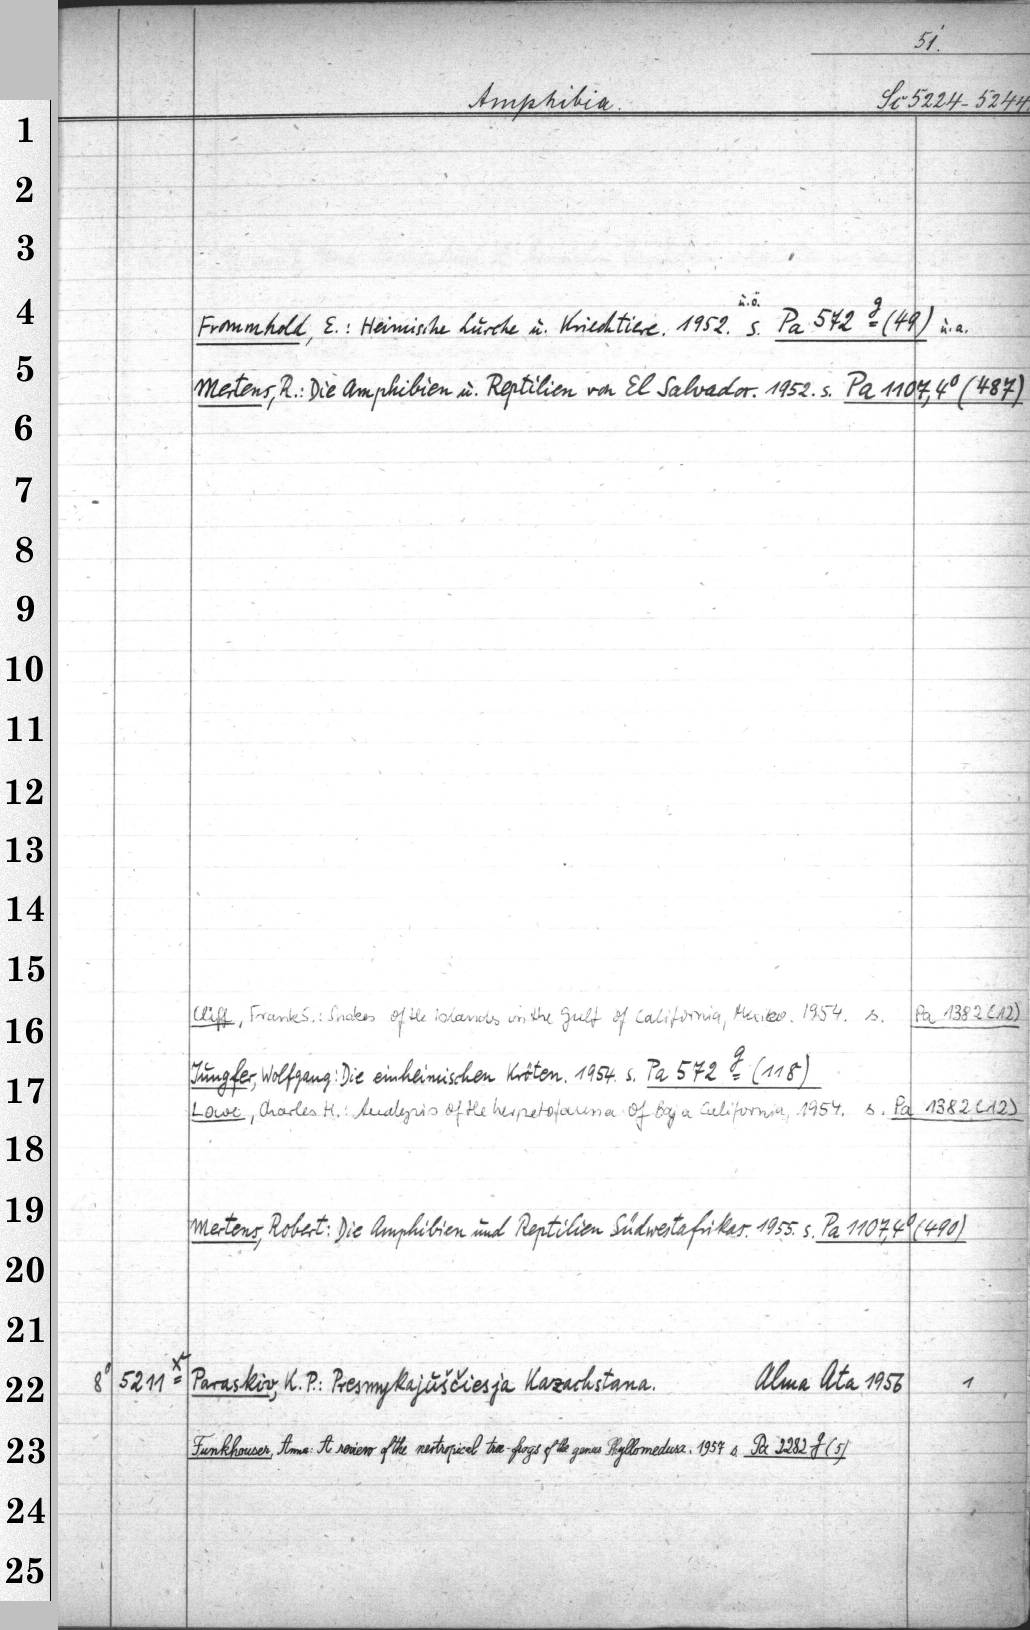 51.
Amphibia. Sc 5224-5244
1
2
3
4 Frommhold, E.: Heimische Lurche u. Kriechtiere. 1952. u.ö. s. Pa 572 g (49) u.a.
5 Mertens, R.: Die Amphibien u. Reptilien von El Salvador. 1952. s. Pa 1107,4° (487)
6
7
8
9
10
11
12
13
14
15
16 Cliff, Frank S.: Snakes of the islands in the Gulf of California, Mexico. 1954. s. Pa 1382 (12)
17 Jungfer, Wolfgang: Die einheimischen Kröten. 1954. s. Pa 572 g (118)
Lowe, Charles H.: Analysis of the herpetofauna of Baja California, 1954. s. Pa 1382 (12)
18
19 Mertens, Robert: Die Amphibien und Reptilien Südwestafrikas. 1955. s. Pa 1107,4° (490)
20
21
22 8° 5211 x Paraskiv, K. P.: Presmykajuščiesja Kazachstana. Alma Ata 1956 1
23 Funkhouser, Anne: A review of the neotropical tree-frogs of the genus Phyllomedusa. 1957 s. Pa 2282 g (5)
24
25